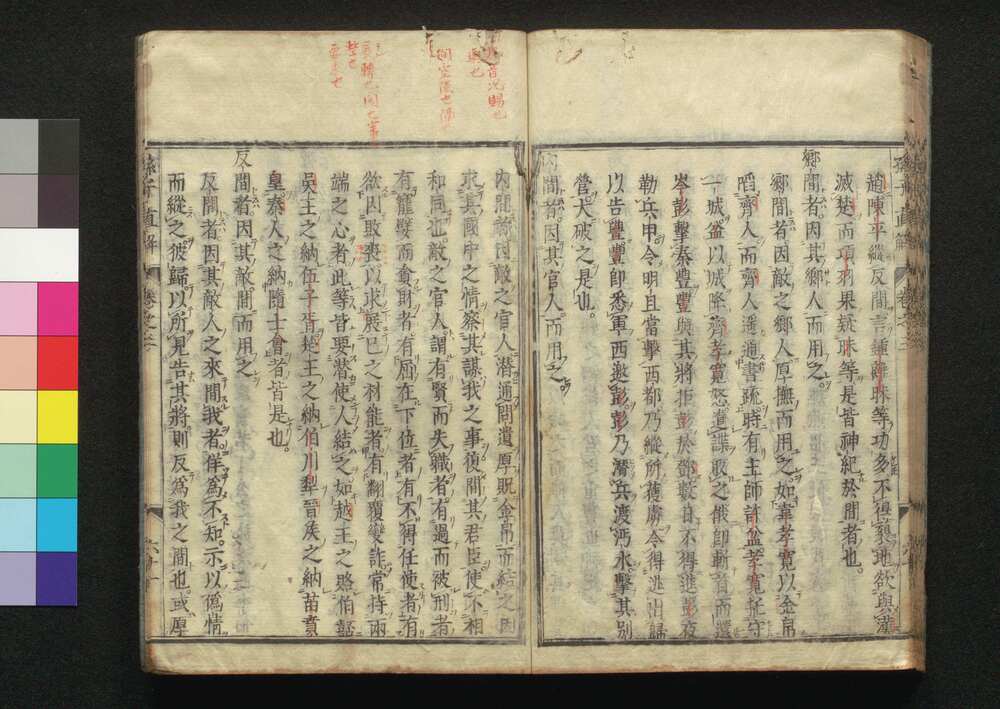 趙陳平縱反間言鍾離昧等功多不得裂地欲與漢
滅楚而項羽果疑昧等是皆神紀於間者也
鄉間者因其鄉人而用之
鄉間者因敵之鄉人厚撫而用之如韋孝寬以金帛
啗齊人而齊人遥通書疏時有主帥許盆孝寬托守
一城盆以城降齊孝寬怒遣諜取之俄即斬首而還
岑彭擊秦豐豐與其將拒彭於鄧數月不得進彭夜
勒兵甲令明旦當擊西都乃縱所獲虜令得逃出歸
以告豐豐即悉軍西邀彭彭乃潛兵渡沔水擊其別
營大破之是也
內間者因其官人而用之
內間者因敵之官人潛通問遺厚貺金帛而結之因
求其國中之情察其謀我之事復間其君臣使不相
和同也敵之官人謂有賢而失職者有過而被刑者
有寵嬖而貪財者有屈在下位者有不得任使者有
欲因敗喪以求展己之材能者有翻覆變詐常持兩
端之心者此等皆要潛使人結之如越王之賂伯嚭
吳王之納伍子胥楚王之納伯州犂晉侯之納苗賁
皇秦人之納隨士會者皆是也
反間者因其敵間而用之
反間者因其敵人之來間我者佯為不知示以偽情
而縱之彼歸以所見告其將則反為我之間也或厚
孫子直解 卷之三